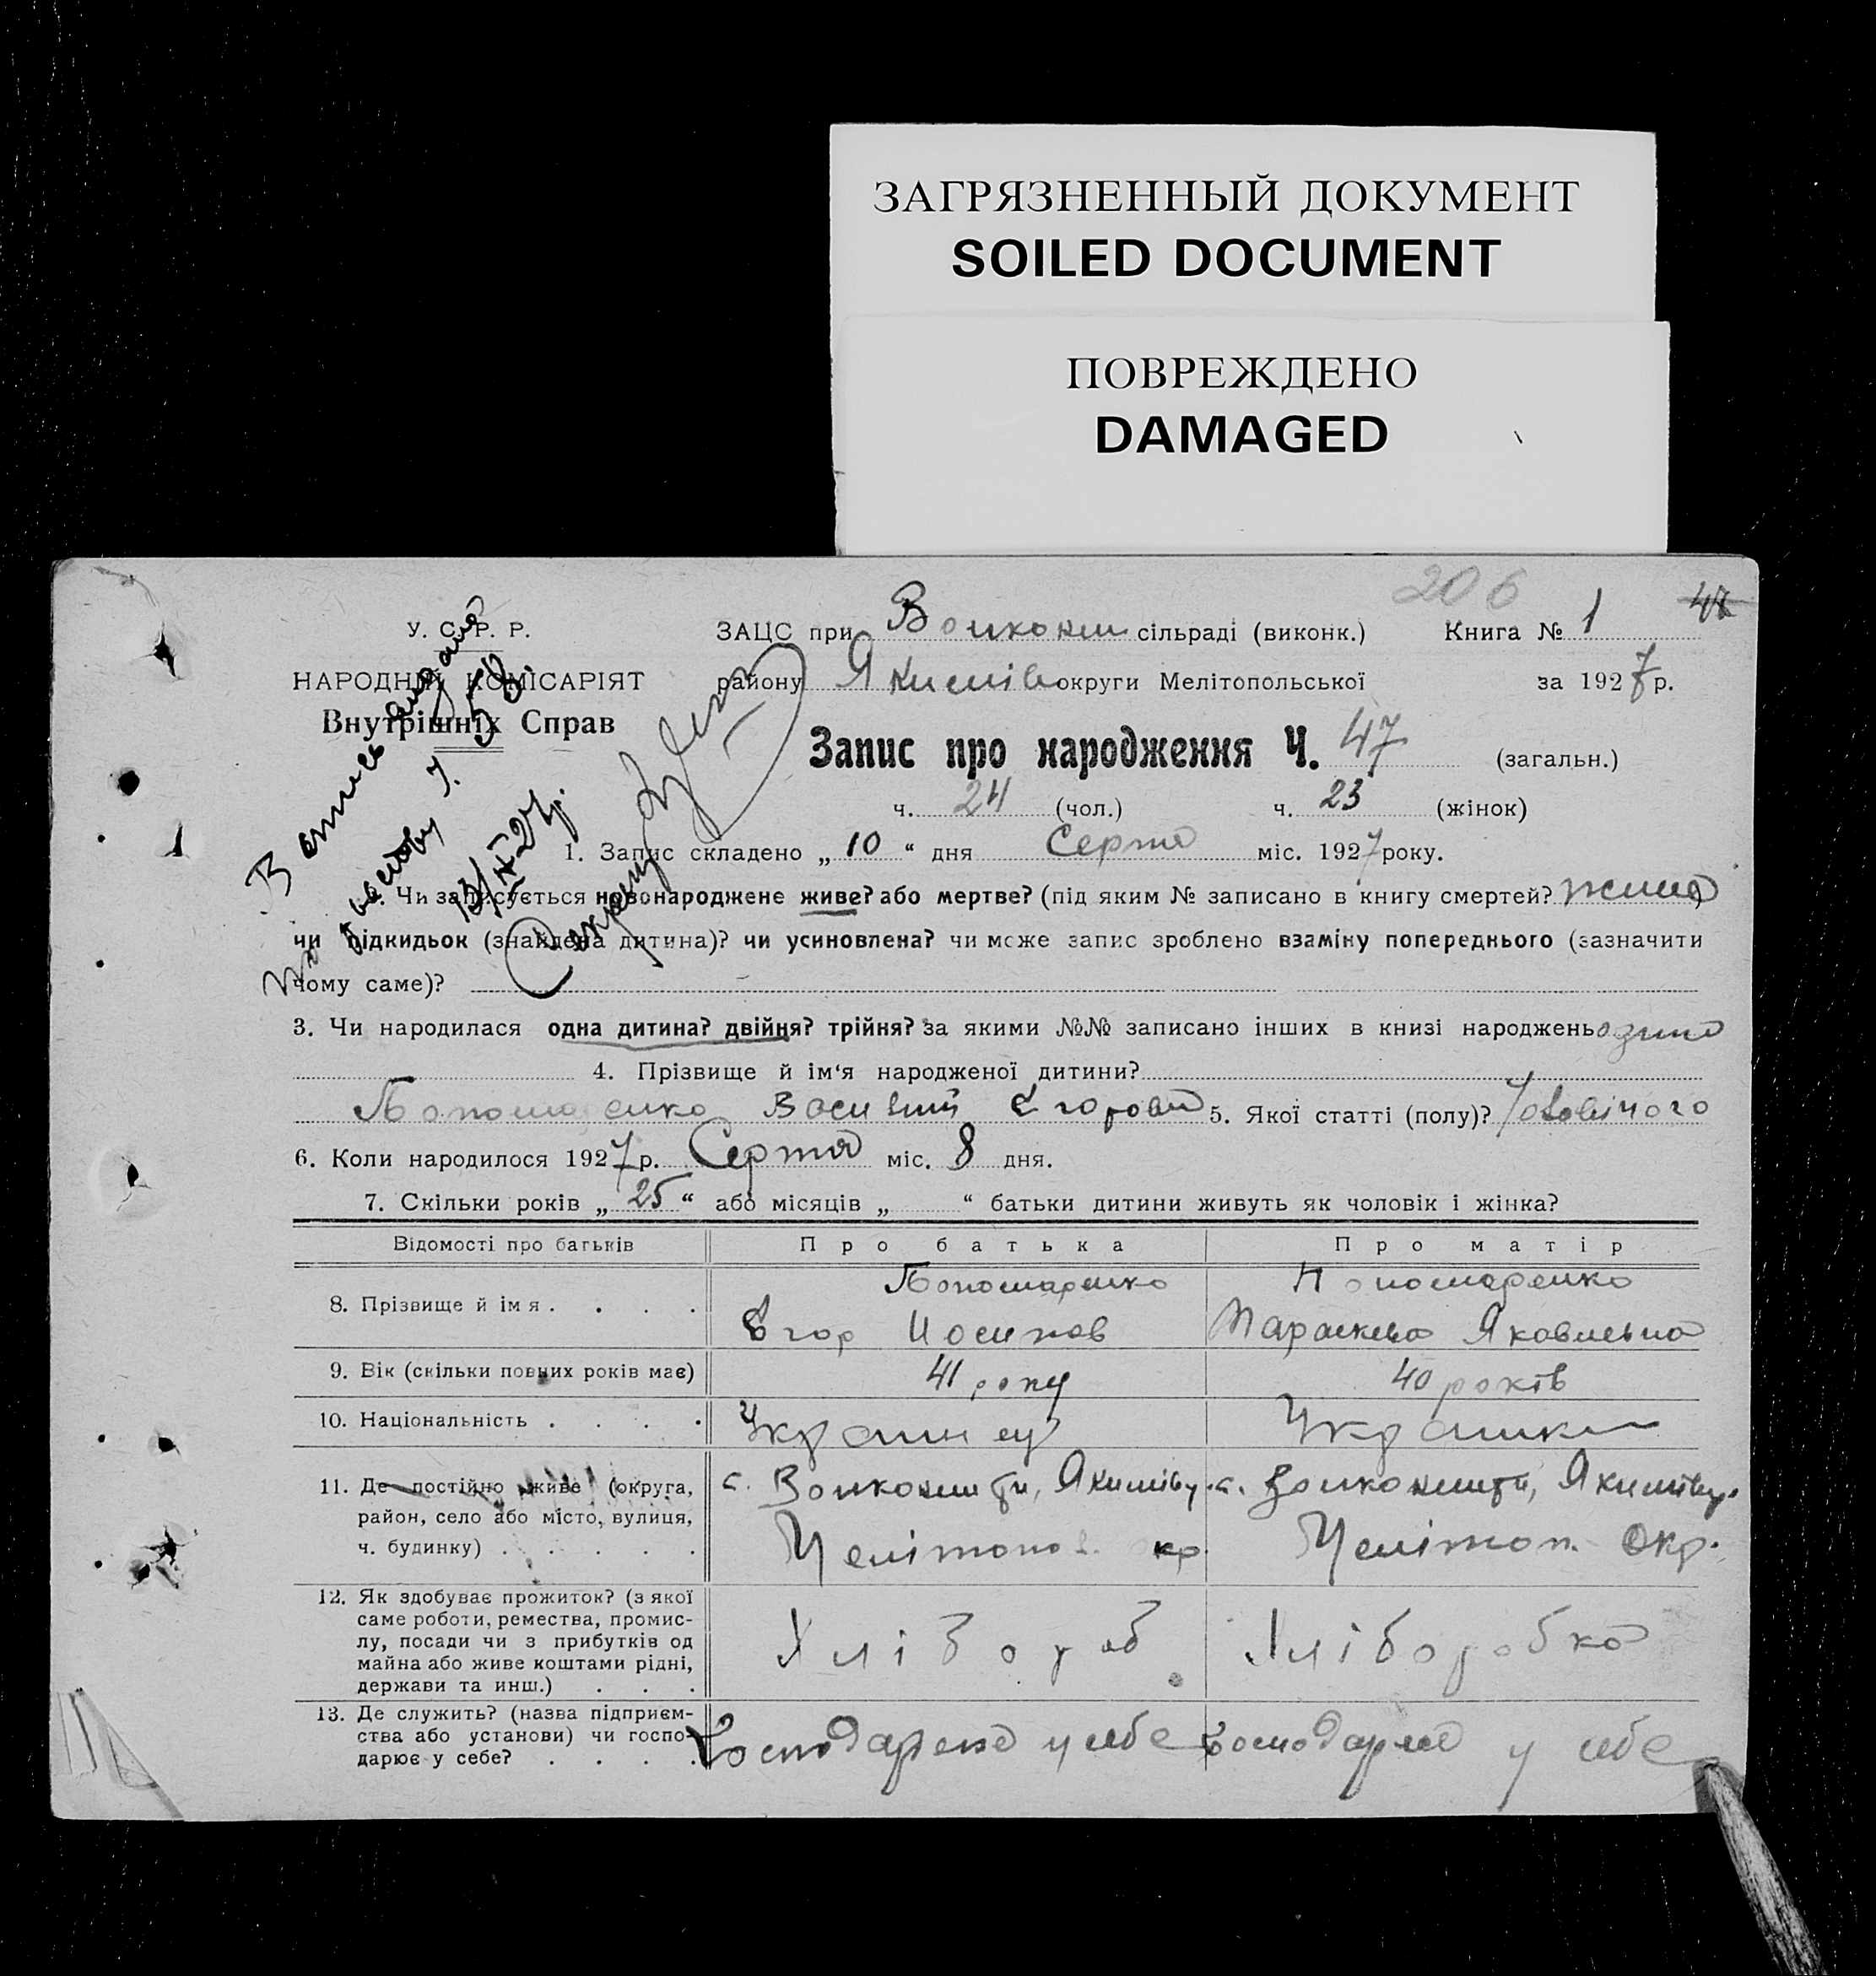 ЗАГРЯЗНЕННЫЙ ДОКУМЕНТ
SOILED DOCUMENT
ПОВРЕЖДЕНО
DAMAGED
206 47
У. С. Р. Р.
ЗАЦС при сільраді (виконк.) Книга № 1
НАРОДНІЙ КОМІСАРІЯТ
району Якимів округи Мелітопольської за 1927 р.
Внутрішніх Справ
Запис про народження Ч. 47 (загальн.)
ч. 24 (чол.) ч. 23 (жінок)
1. Запис складено „ 10 “ дня Серпня міс. 1927 року.
Чи записується новонароджене живе? або мертве? (під яким № записано в книгу смертей?
чи підкидьок (знайдена дитина)? чи усиновлена? чи може запис зроблено взаміну попереднього (зазначити
чому саме)?
3. Чи народилася одна дитина? двійня? трійня? за якими №№ записано інших в книзі народжень
4. Прізвище й ім‘я народженої дитини?
Пономаренко Василий Егоров 5. Якої статті (полу)? Чоловічого
6. Коли народилося 1927 р. Серпня міс. 8 дня.
7. Скільки років „ 25 “ або місяців „ “ батьки дитини живуть як чоловік і жінка?
Відомості про батьків Про батька Про матір
8. Прізвище й імя . . . . Пономаренко Егор Иосипов Пономаренко Параскева Яковлевна
9. Вік (скільки повних років має) 41 року 40 років
10. Національність . . . . Українец Українка
11. Де постійно живе (округа, с. Якимівг. с. Якимівг.
район, село або місто, вулиця,
ч. будинку) . . . . . Мелітопол. окр. Мелітоп. Окр.
12. Як здобуває прожиток? (з якої
саме роботи, ремества, промис-
лу, посади чи з прибутків од Хлібороб Хліборобка
майна або живе коштами рідні,
держави та инш.) . . .
13. Де служить? (назва підприєм-
ства або установи) чи госпо- Господарює у себе Господарює у себе
дарює у себе? . . . .